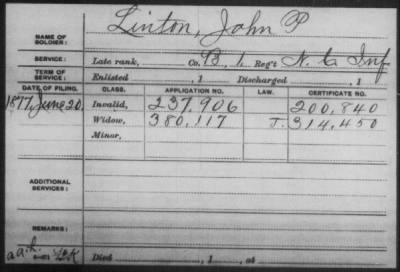 NAME OF SOLDIER: Linton, John P
SERVICE: Late rank, Co. B, 1 Reg't N. C. Inf
TERM OF SERVICE: Enlisted , 1 Discharged , 1
DATE OF FILING. CLASS. APPLICATION NO. LAW. CERTIFICATE NO.
1877 June 20. Invalid, 237,906 200,840
Widow, 380,117 J. 314,450
Minor,
ADDITIONAL SERVICES:
REMARKS:
Died , 1 , at